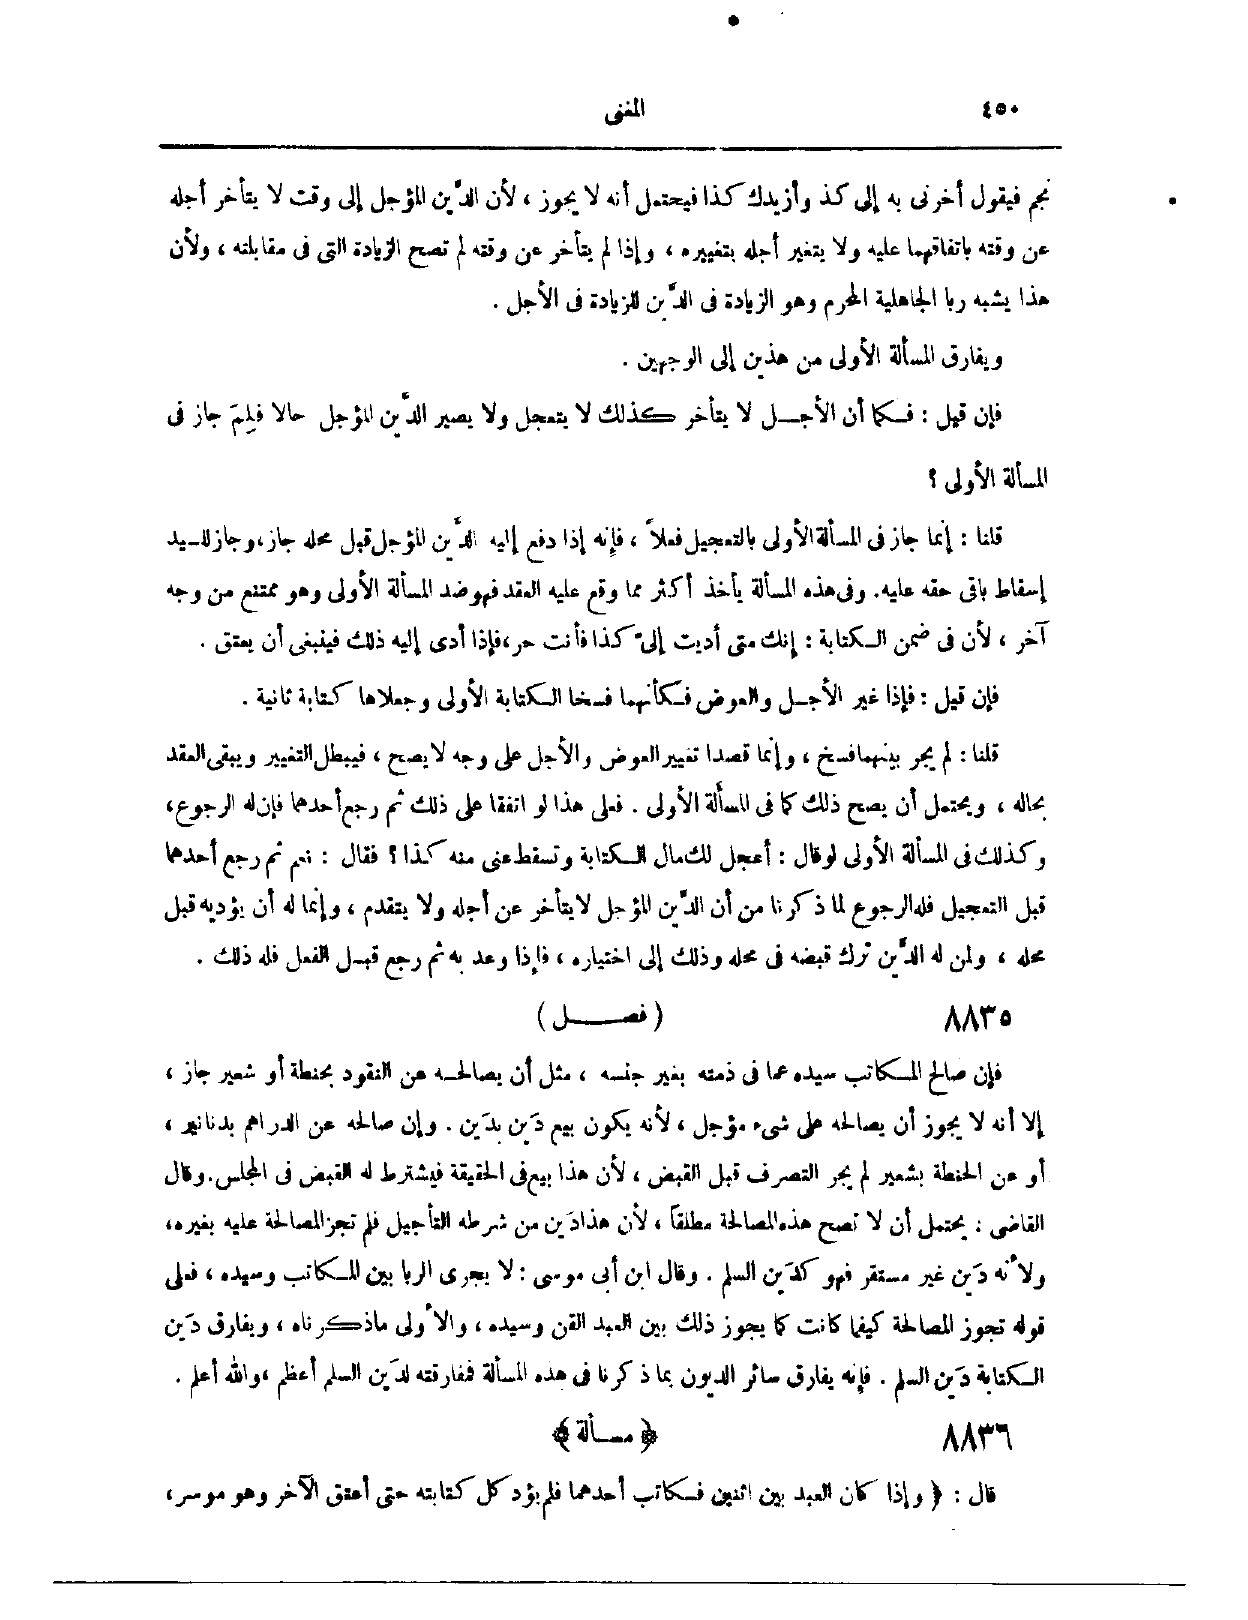 ٤٥٠
المغنى
نجم فيقول أخرنى به إلى كذ وأزيدك كذا فيحتمل أنه لا يجوز ، لأن الدَّين المؤجل إلى وقت لا يتأخر أجله
عن وقته باتفاقهما عليه ولا يتغير أجله بتغييره ، وإذا لم يتأخر عن وقته لم تصح الزيادة التى فى مقابلته ، ولأن
هذا يشبه ربا الجاهلية المحرم وهو الزيادة فى الدَّين للزيادة فى الأجل .
ويفارق المسألة الأولى من هذين إلى الوجهين .
فإن قيل : فكما أن الأجل لا يتأخر كذلك لا يتعجل ولا يصير الدَّين المؤجل حالا فلِمَ جاز فى
المسألة الأولى ؟
قلنا : إنما جاز فى المسألة الأولى بالتعجيل فعلاً ، فإنه إذا دفع إليه الدَّين المؤجل قبل محله جاز ، وجاز للسيد
إسقاط باقى حقه عليه . وفى هذه المسألة يأخذ أكثر مما وقع عليه العقد فهو ضد المسألة الأولى وهو ممتنع من وجه
آخر ، لأن فى ضمن الكتابة : إنك متى أديت إلىّ كذا فأنت حر ، فإذا أدى إليه ذلك فينبغى أن يعتق .
فإن قيل : فإذا غير الأجل والعوض فكأنهما فسخا الكتابة الأولى وجعلاها كتابة ثانية .
قلنا : لم يجر بينهما فسخ ، وإنما قصدا تغيير العوض والأجل على وجه لا يصح ، فيبطل التغيير ويبقى العقد
بحاله ، ويحتمل أن يصح ذلك كما فى المسألة الأولى . فعلى هذا لو اتفقا على ذلك ثم رجع أحدهما فإن له الرجوع ،
وكذلك فى المسألة الأولى لو قال : أعجل لك مال الكتابة وتسقط عنى منه كذا ؟ فقال : نعم ثم رجع أحدهما
قبل التعجيل فله الرجوع لما ذكرنا من أن الدَّين المؤجل لا يتأخر عن أجله ولا يتقدم ، وإنما له أن يؤديه قبل
محله ، ولمن له الدَّين ترك قبضه فى محله وذلك إلى اختياره ، فإذا وعد به ثم رجع قبل الفعل فله ذلك .
٨٨٣٥ (فصل)
فإن صالح المكاتب سيده عما فى ذمته بغير جنسه ، مثل أن يصالحه عن النقود بحنطة أو شعير جاز ،
إلا أنه لا يجوز أن يصالحه على شىء مؤجل ، لأنه يكون بيع دَين بدَين . وإن صالحه عن الدراهم بدنانير ،
أو عن الحنطة بشعير لم يجز التصرف قبل القبض ، لأن هذا بيع فى الحقيقة فيشترط له القبض فى المجلس . وقال
القاضى : يحتمل أن لا تصح هذه المصالحة مطلقاً ، لأن هذا دَين من شرطه التأجيل فلم تجز المصالحة عليه بغيره ،
ولأنه دَين غير مستقر فهو كدَين السلم . وقال ابن أبى موسى : لا يجرى الربا بين المكاتب وسيده ، فعلى
قوله تجوز المصالحة كيفما كانت كما يجوز ذلك بين العبد القن وسيده ، والأولى ما ذكرناه ، ويفارق دَين
الكتابة دَين السلم . فإنه يفارق سائر الديون بما ذكرنا فى هذه المسألة فمفارقته لدَين السلم أعظم ، والله أعلم .
٨٨٣٦ ﴿ مسألة ﴾
قال : ﴿ وإذا كان العبد بين اثنين فكاتب أحدهما فلم يؤد كل كتابته حتى أعتق الآخر وهو موسر ،